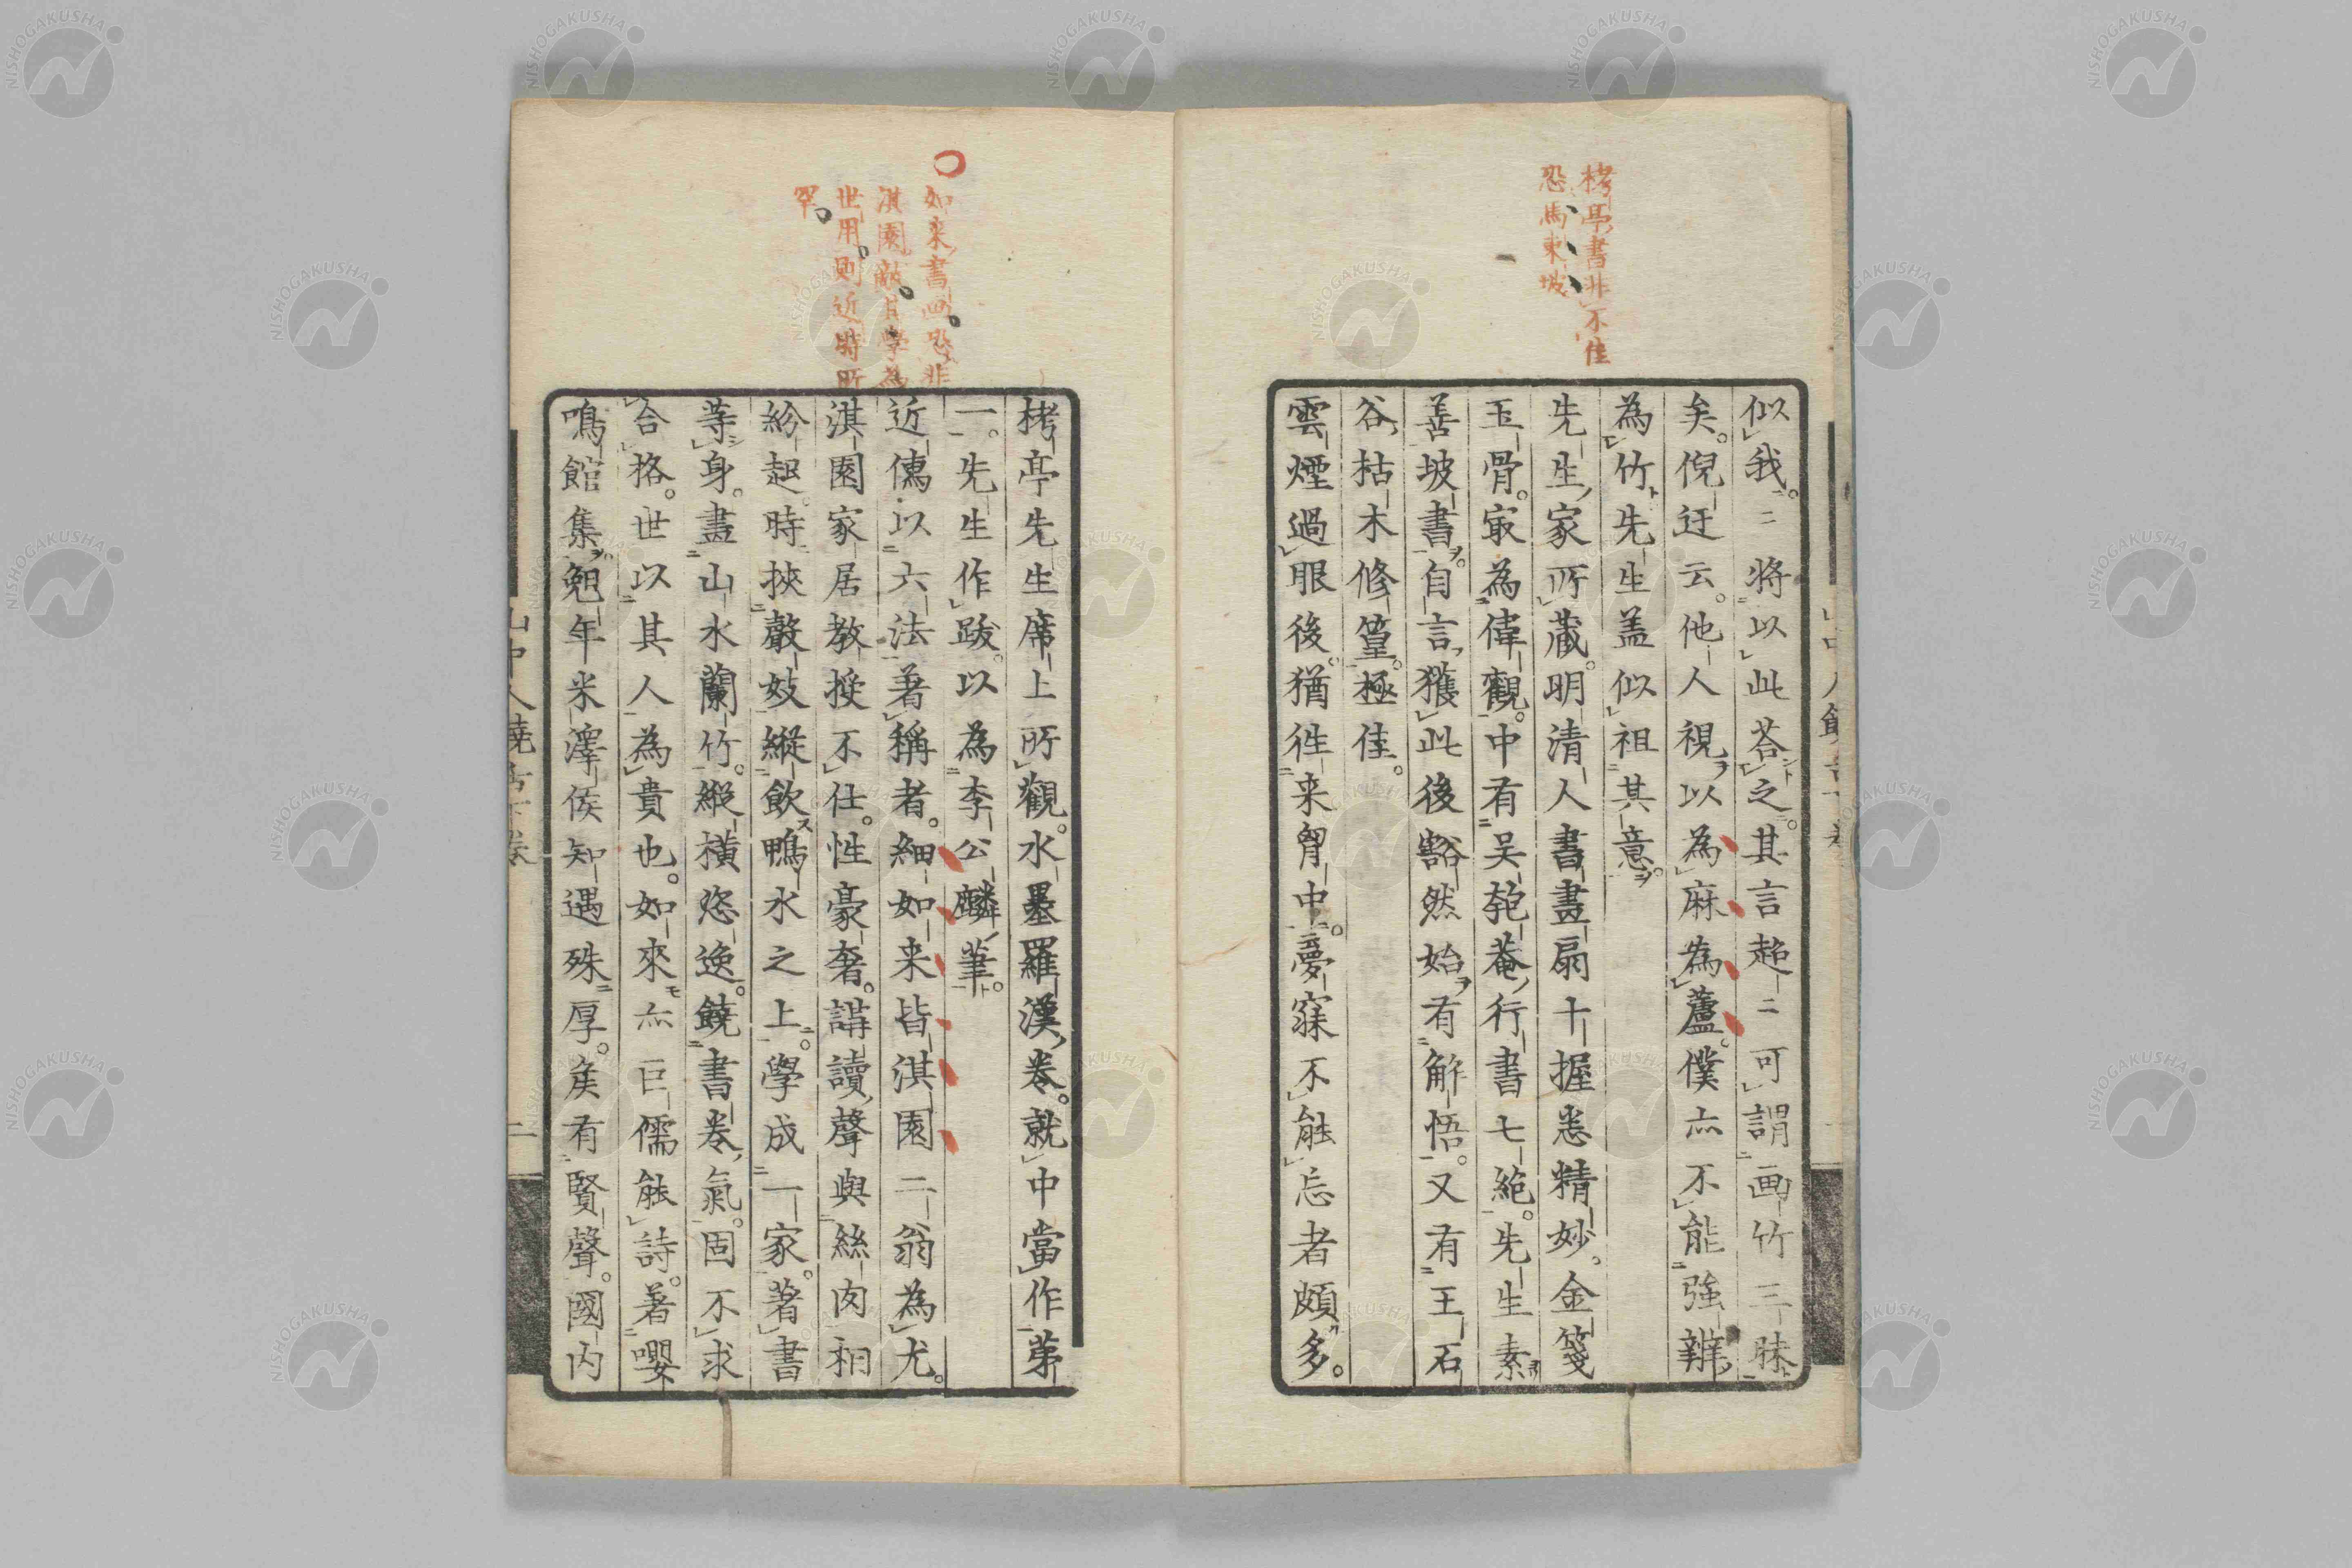 栲亭書非不佳
恐馬東坡
似我。將以此荅之。其言超二可謂画竹三昧
矣。倪迂云。他人視以為麻為蘆。僕亦不能強辯
為竹。先生盖似祖其意。
先生家所藏。明清人書畫扇十握悉精妙。金箋
玉骨。冣為偉觀。中有吴匏菴行書七絶。先生素
善坡書。自言獲此後豁然始有解悟。又有王石
谷枯木修篁。極佳。
雲煙過眼後。猶徃来胷中。夢寐不能忘者頗多。
如来書画恐非
淇園敵其學為
世用。則近時所
罕。
栲亭先生席上所觀。水墨羅漢卷。就中當作苐
一。先生作跋。以為李公麟筆。
近儒以六法著稱者。細如来皆淇園二翁為尤。
淇園家居教授不仕。性豪奢。講讀聲與絲肉相
紛起。時挾聲妓縱飲鴨水之上。學成一家。著書
等身。畫山水蘭竹。縱橫恣逸。饒書卷氣。固不求
合格。世以其人為貴也。如來亦巨儒能詩。著嚶
鳴館集。勉年米澤侯知遇殊厚。矦有賢聲。國内
山中人饒舌下卷
二
NISHOGAKUSHA